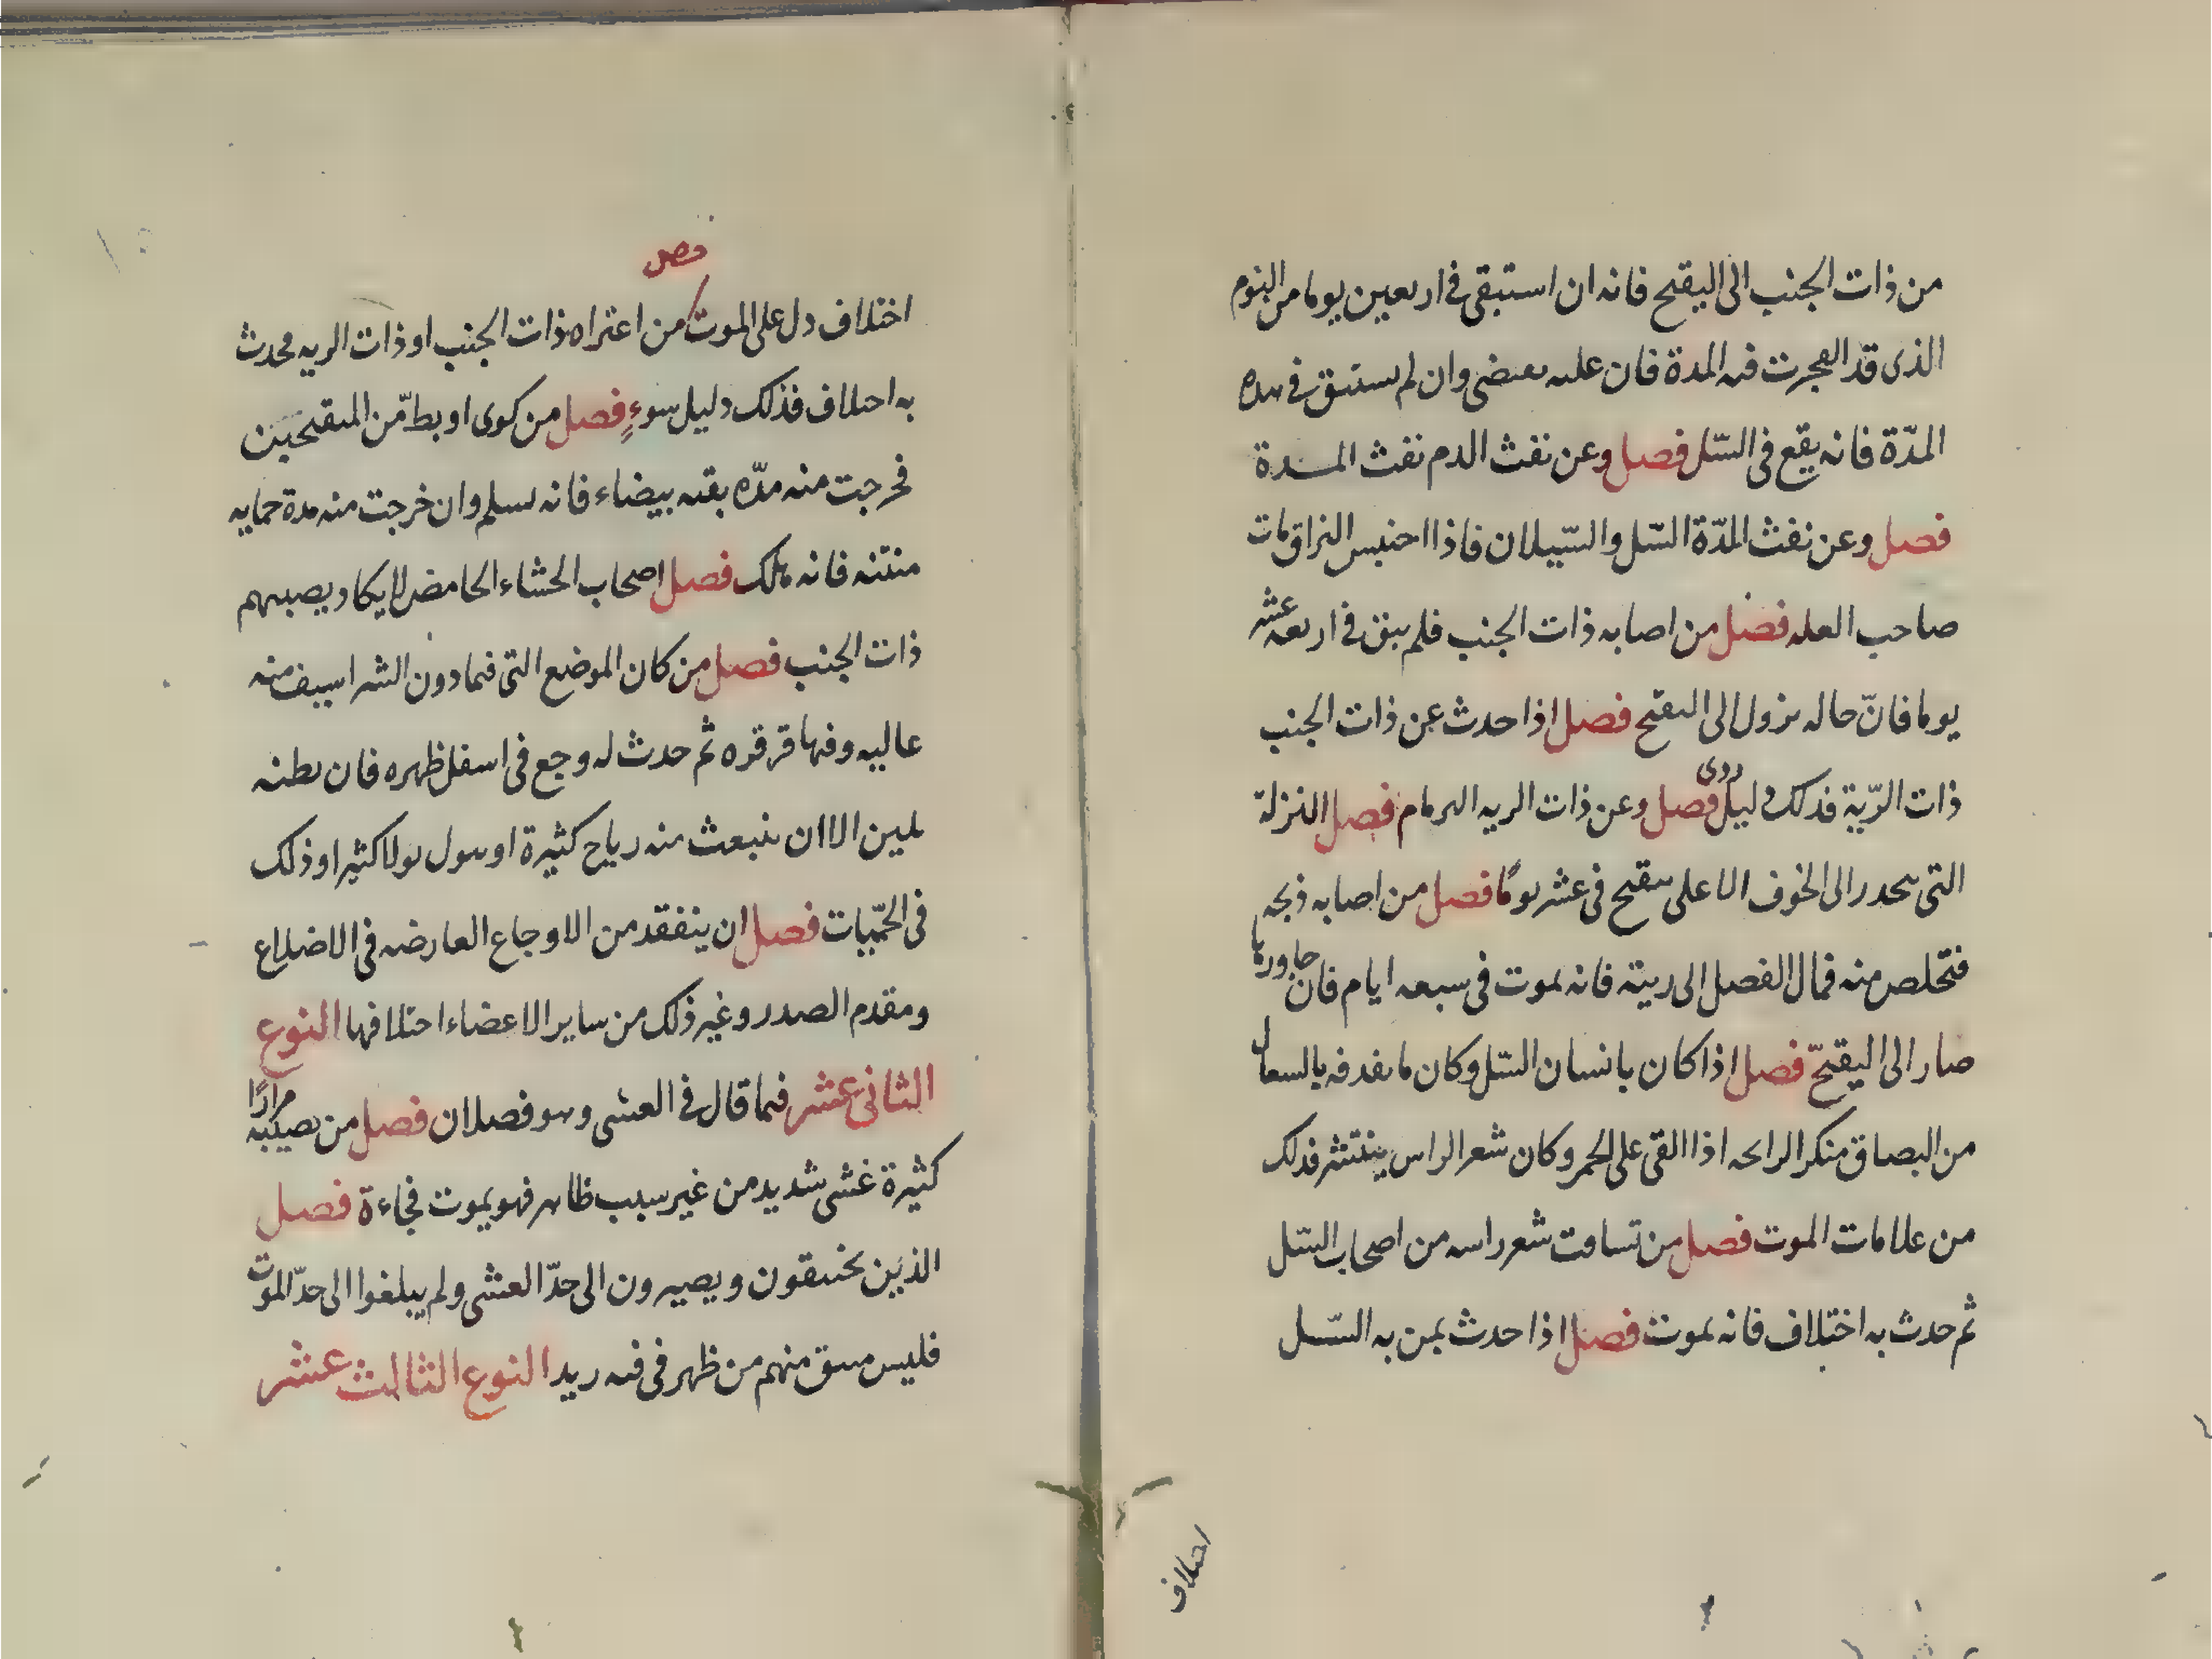 من ذات الجنب الى اليقيح فانه ان استبقى فى اربعين يوما من اليوم
الذى قد انفجرت فيه المدة فان علته تنقضى وان لم يستنق فى هذه
المدّة فانه يقع فى السّل فصل وعن نفث الدم نفث المدة
فصل وعن نفث المدّة السّل والسّيلان فاذا احتبس البزاق مات
صاحب العله فصل من اصابه ذات الجنب فلم ينق فى اربعه عشر
يوما فانّ حاله يزول الى التقيح فصل اذا حدث عن ذات الجنب
ذات الرّية فذلك دليل ردى فصل وعن ذات الريه البرسام فصل النزلة
التى تنحدر الى الجوف الاعلى يتقيح فى عشرين يومًا فصل من اصابه ذبحه
فتخلص منه فمال الفضل الى ريته فانه يموت فى سبعه ايام فان جاوزها
صار الى اليقيحّ فصل اذا كان بانسان السّل وكان ما يقذفه بالسعال
من البصاق منكر الرايحه اذا القى على الجمر وكان شعر الراس ينتثر فذلك
من علامات الموت فصل من تساقط شعر راسه من اصحاب السّل
ثم حدث به اختلاف فانه يموت فصل اذا حدث بمن به السّل
احلاف
فصل
اختلاف دل على الموت من اعتراه ذات الجنب او ذات الريه فحدث
به اختلاف فذلك دليل سوءٍ فصل من كوى او بطّ من المتقيحين
فخرجت منه مدّه نقيه بيضاء فانه يسلم وان خرجت منه مدة حمايه
منتنه فانه يهلك فصل اصحاب الجشاء الحامض لا يكاد يصيبهم
ذات الجنب فصل من كان الموضع التى فيما دون الشراسيف منه
عاليه وفيها قرقره ثم حدث له وجع فى اسفل ظهره فان بطنه
يلين الا ان ينبعث منه رياح كثيرة او يبول بولا كثيرا وذلك
فى الحمّيات فصل ان يتفقد من الاوجاع العارضه فى الاضلاع
ومقدم الصدر وغير ذلك من ساير الاعضاء اختلافها النوع
الثانى عشر فيما قال فى الغشى وهو فصلان فصل من يصيبه مرارًا
كثيرة غشى شديد من غير سبب ظاهر فهو يموت فجاءة فصل
الذين يختنقون ويصيرون الى حدّ الغشى ولم يبلغوا الى حدّ الموت
فليس يفيق منهم من ظهر فى فيه زبد النوع الثالث عشر